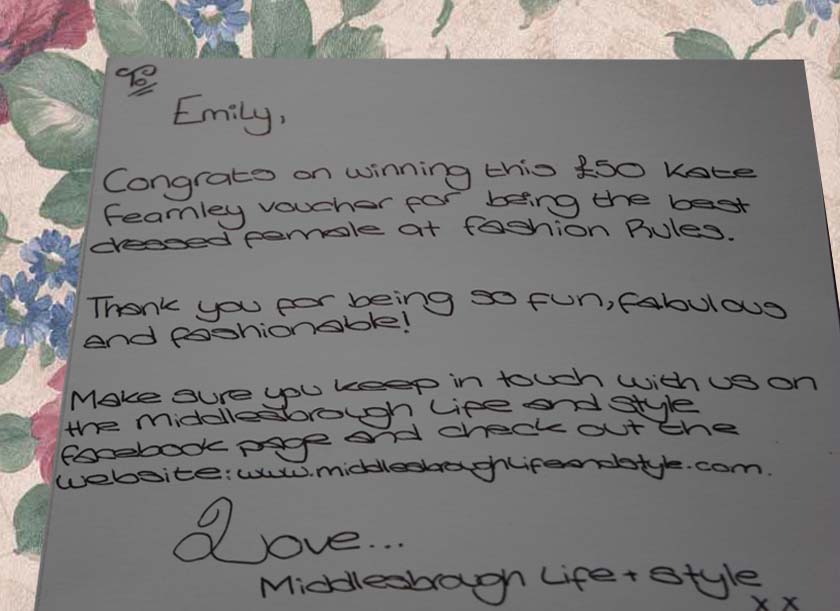 To
Emily,
Congrats on winning this £50 Kate
Fearnley voucher for being the best
dressed female at Fashion Rules.
Thank you for being so fun, fabulous
and fashionable!
Make sure you keep in touch with us on
the Middlesbrough Life and Style
facebook page and check out the
website: www.middlesbroughlifeandstyle.com.
Love...
Middlesbrough Life + Style
x x